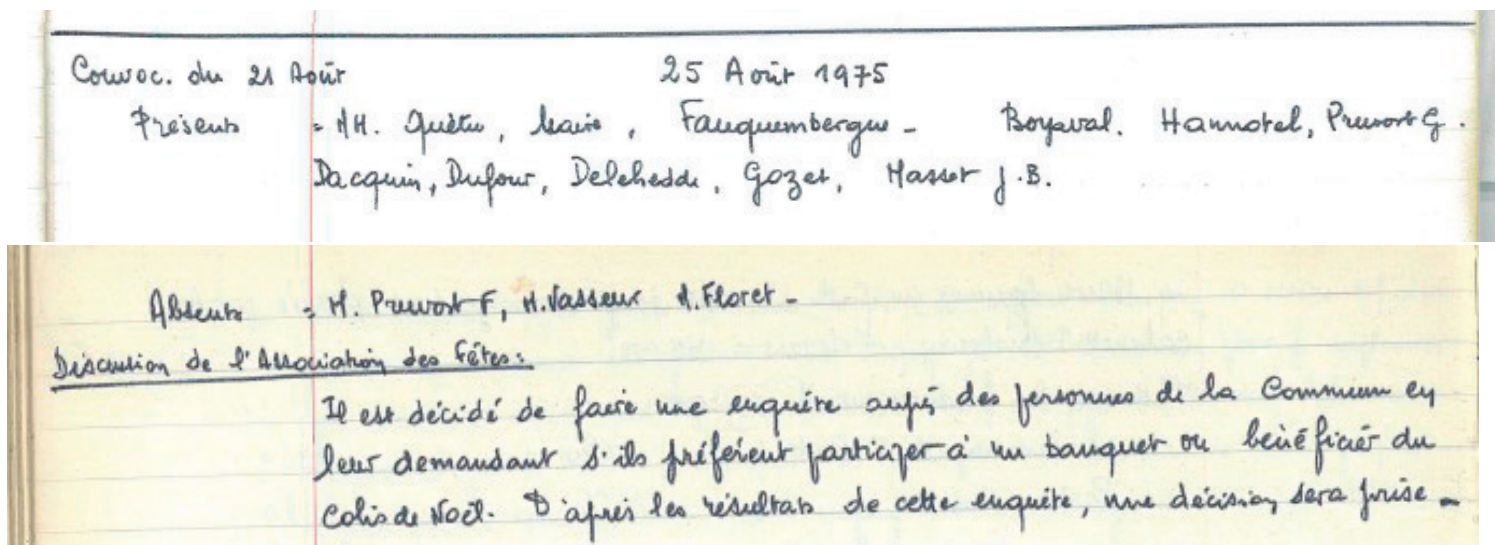 Convoc. du 21 Août 25 Août 1975
Présents = MM. Quétu, Maire, Fauquembergue - Boyaval. Hannotel, Pruvost G.
Dacquin, Dufour, Delehedde, Gozet, Masset J.B.
Absents = M. Pruvost F, M. Vasseur M. Floret -
Discution de l'Association des Fêtes:
Il est décidé de faire une enquête auprès des personnes de la Commune en
leur demandant s'ils préfèrent participer à un banquet ou bénéficier du
Colis de Noël. D'après les résultats de cette enquête, une décision sera prise -